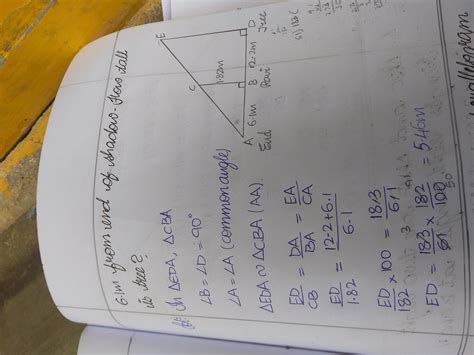 6.1m from end of shadow. How tall
is tree?
In ΔEDA, ΔCBA
∠B = ∠D = 90°
∠A = ∠A (common angle)
ΔEDA ~ ΔCBA (AA)
ED/CB = DA/BA = EA/CA
ED/1.82 = 12.2+6.1/6.1
ED/182 × 100 = 183/61
ED = 183/61 × 182/100 = 5.46m
50
E
C
1.82m
A 6.1m B 12.2m D
End Ravi Tree